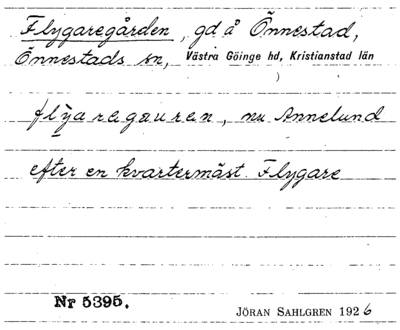 Flygaregården, gd å Önnestad,
Önnestads sn, Västra Göinge hd, Kristianstad län
flyaregauren, nu Annelund
efter en kvartermäst. Flygare
Nr 5395.
JÖRAN SAHLGREN 1926